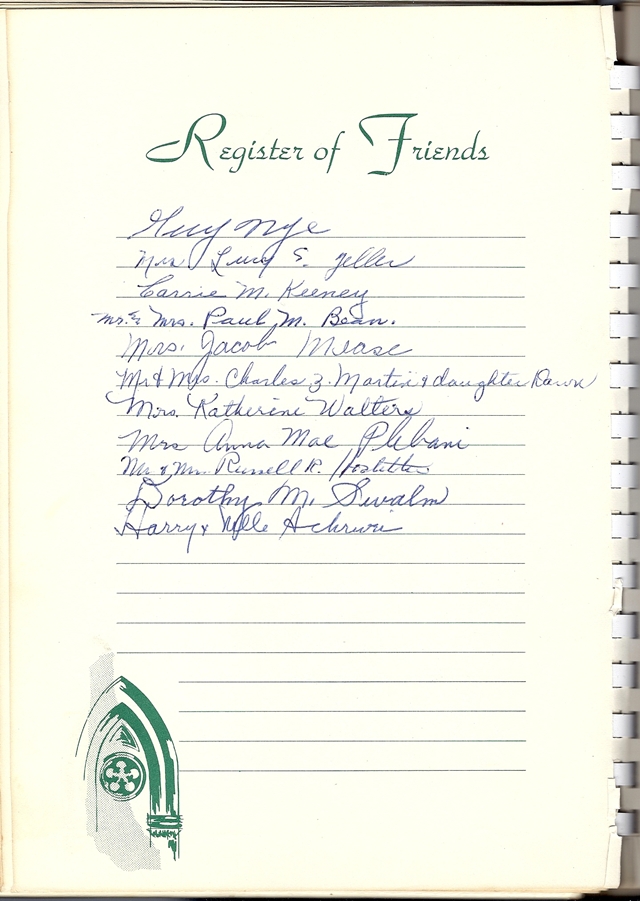 Register of Friends
Guy Nye
Mrs Lucy E. Zeller
Carrie M. Keeney
Mr. & Mrs. Paul M. Bean.
Mrs. Jacob Mease
Mr & Mrs. Charles Z. Martin & daughter Dawn
Mrs. Katherine Walters
Mrs Anna Mae Plebani
Mr & Mrs. Russell R. Hostetter
Dorothy M. Swalm
Harry &